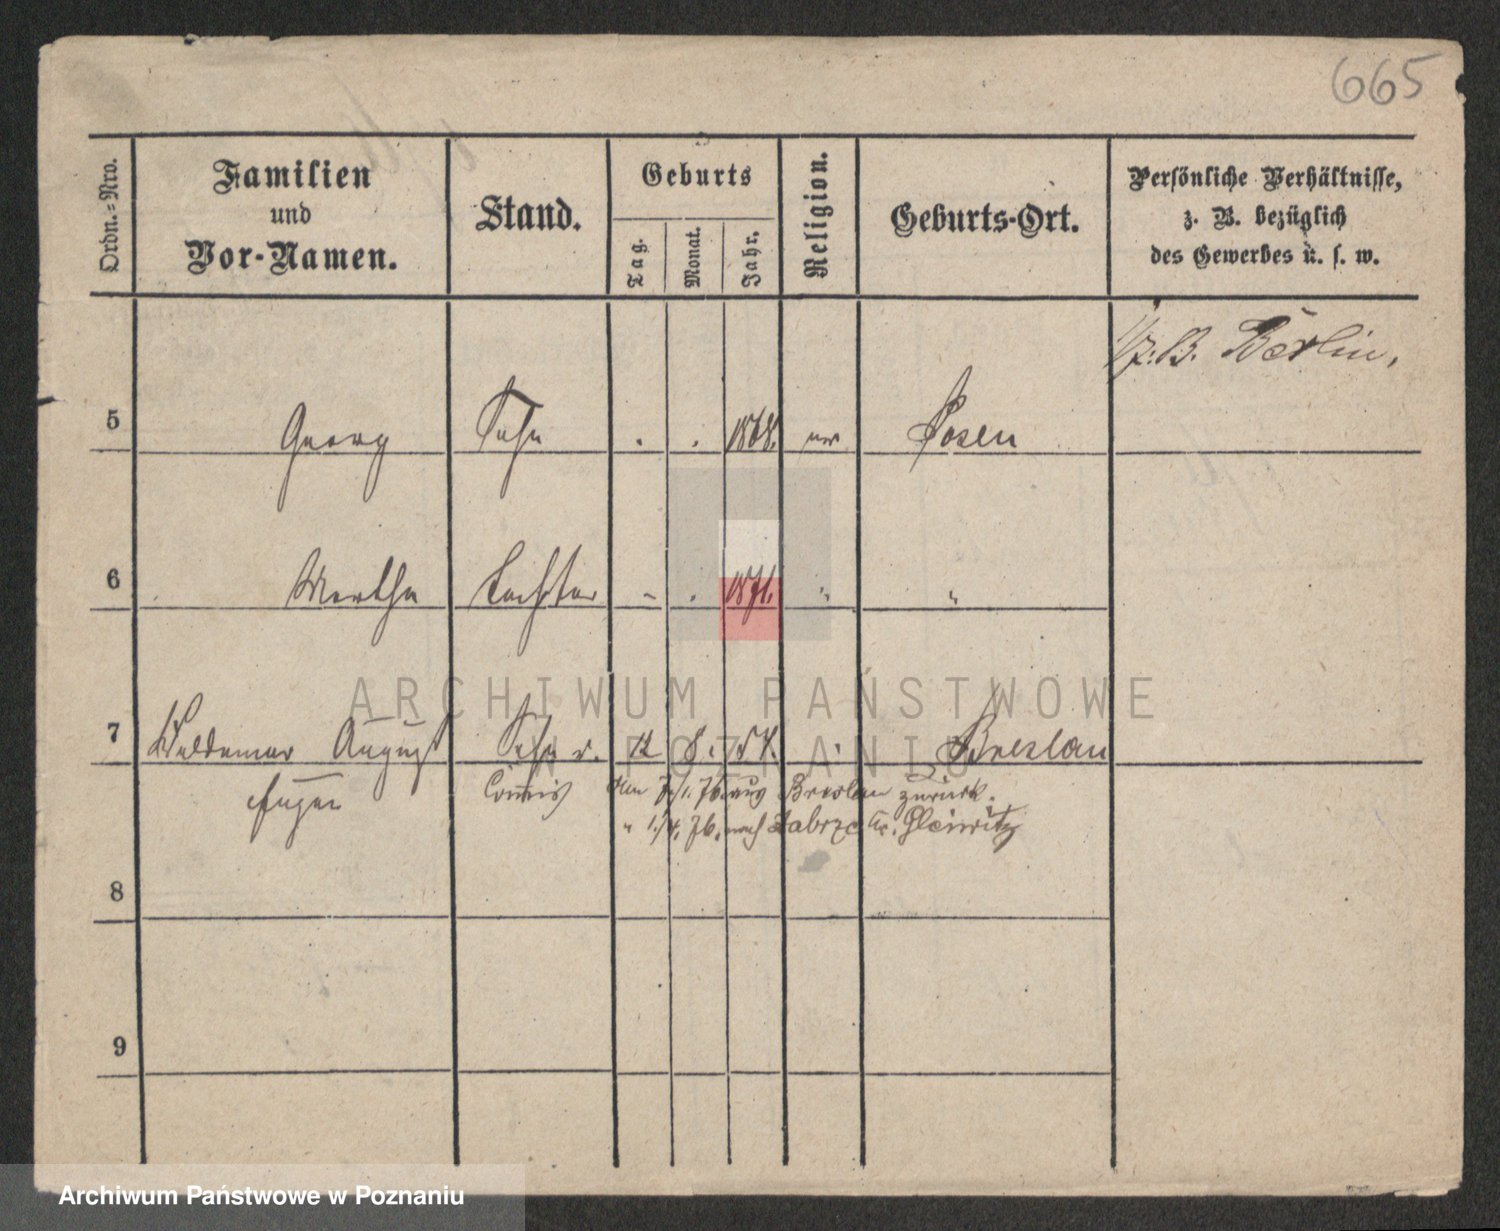 665
Ordn.-Nro.
Familien
und
Vor-Namen.
Stand.
Geburts
Tag.
Monat.
Jahr.
Religion.
Geburts-Ort.
Persönliche Verhältnisse,
z. B. bezüglich
des Gewerbes u. s. w.
Berlin,
5 Georg Sohn . . 1868. Posen
6 Martha Tochter - . 1871. " "
7 Waldemar August Sohn 12 8. 54. Breslau
Eugen Commis Am 7./1. 76. aus Breslau zurück.
" 1./4. 76. nach Zabrze Kr. Gleiwitz
8
9
ARCHIWUM PAŃSTWOWE
W POZNANIU
Archiwum Państwowe w Poznaniu